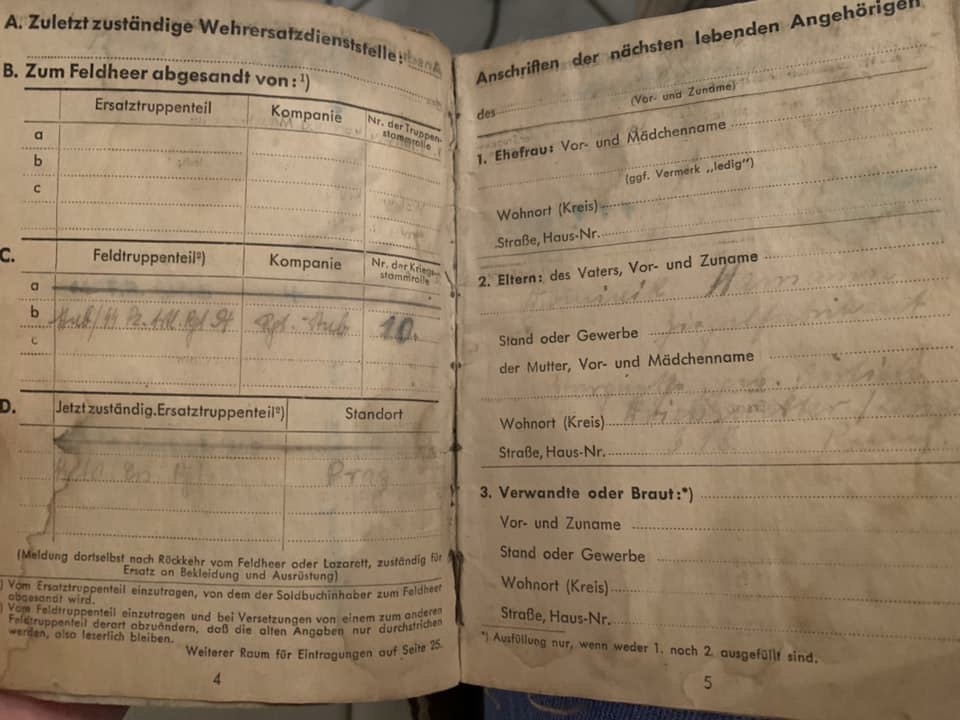 A. Zuletzt zuständige Wehrersatzdienststelle:
B. Zum Feldheer abgesandt von: ¹)
Ersatztruppenteil Kompanie Nr. der Truppen-
stammrolle
a
b
c
C. Feldtruppenteil²) Kompanie Nr. der Kriegs-
stammrolle
a
b 10.
c
D. Jetzt zuständig. Ersatztruppenteil²) Standort
Prag
(Meldung dortselbst nach Rückkehr vom Feldheer oder Lazarett, zuständig für
Ersatz an Bekleidung und Ausrüstung)
) Vom Ersatztruppenteil einzutragen, von dem der Soldbuchinhaber zum Feldheer
abgesandt wird.
) Vom Feldtruppenteil einzutragen und bei Versetzungen von einem zum anderen
Feldtruppenteil derart abzuändern, daß die alten Angaben nur durchstrichen
werden, also leserlich bleiben.
Weiterer Raum für Eintragungen auf Seite 25.
4
Anschriften der nächsten lebenden Angehörigen
des
(Vor- und Zuname)
1. Ehefrau: Vor- und Mädchenname
(ggf. Vermerk „ledig")
Wohnort (Kreis)
Straße, Haus-Nr.
2. Eltern: des Vaters, Vor- und Zuname
Stand oder Gewerbe
der Mutter, Vor- und Mädchenname
Wohnort (Kreis)
Straße, Haus-Nr.
3. Verwandte oder Braut:*)
Vor- und Zuname
Stand oder Gewerbe
Wohnort (Kreis)
Straße, Haus-Nr.
*) Ausfüllung nur, wenn weder 1. noch 2. ausgefüllt sind.
5